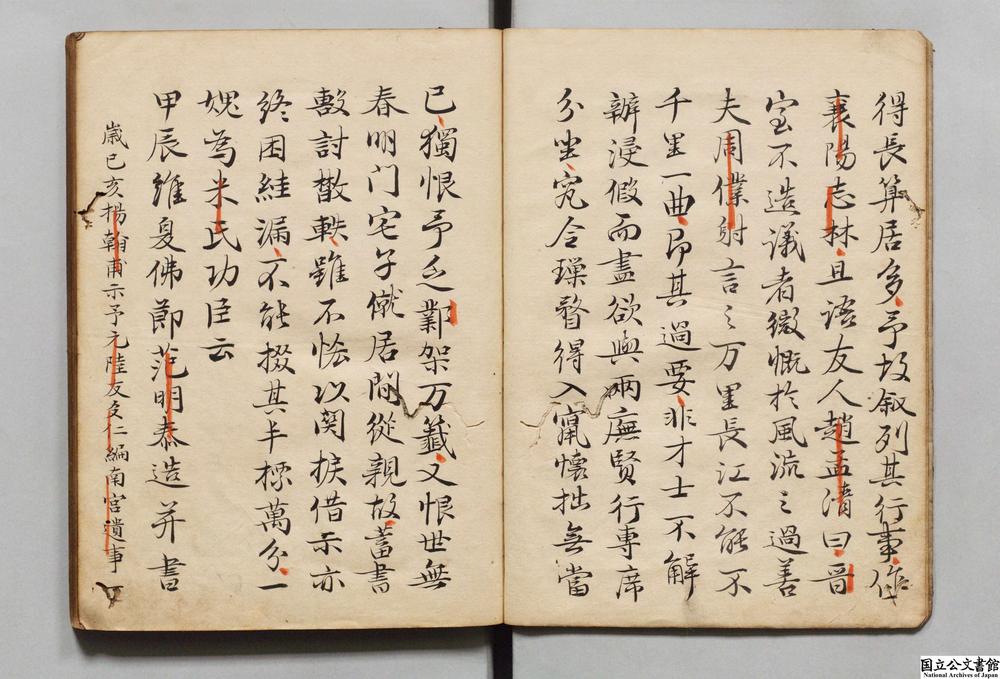 得長算居多予故叙列其行事作
襄陽志林且语友人趙孟清曰晋
室不造議者微慨於風流之過善
夫周僕射言之万里長江不能不
千里一曲昂其過要非才士不解
辦浸假而盡欲與兩廡賢行專席
分坐究令璅瞀得入窟懷拙無當
已獨恨予乏鄴架万籖又恨世無
春明门宅子僦居間從親故蓄書
數討散軼雖不恡以関掞借示亦
終困絓漏不能掇其半標萬分一
媿為米氏功臣云
甲辰維夏佛節范明泰造并書
歳已亥楊翰甫示予元陸友友仁編南宮遺事
国立公文書館
National Archives of Japan